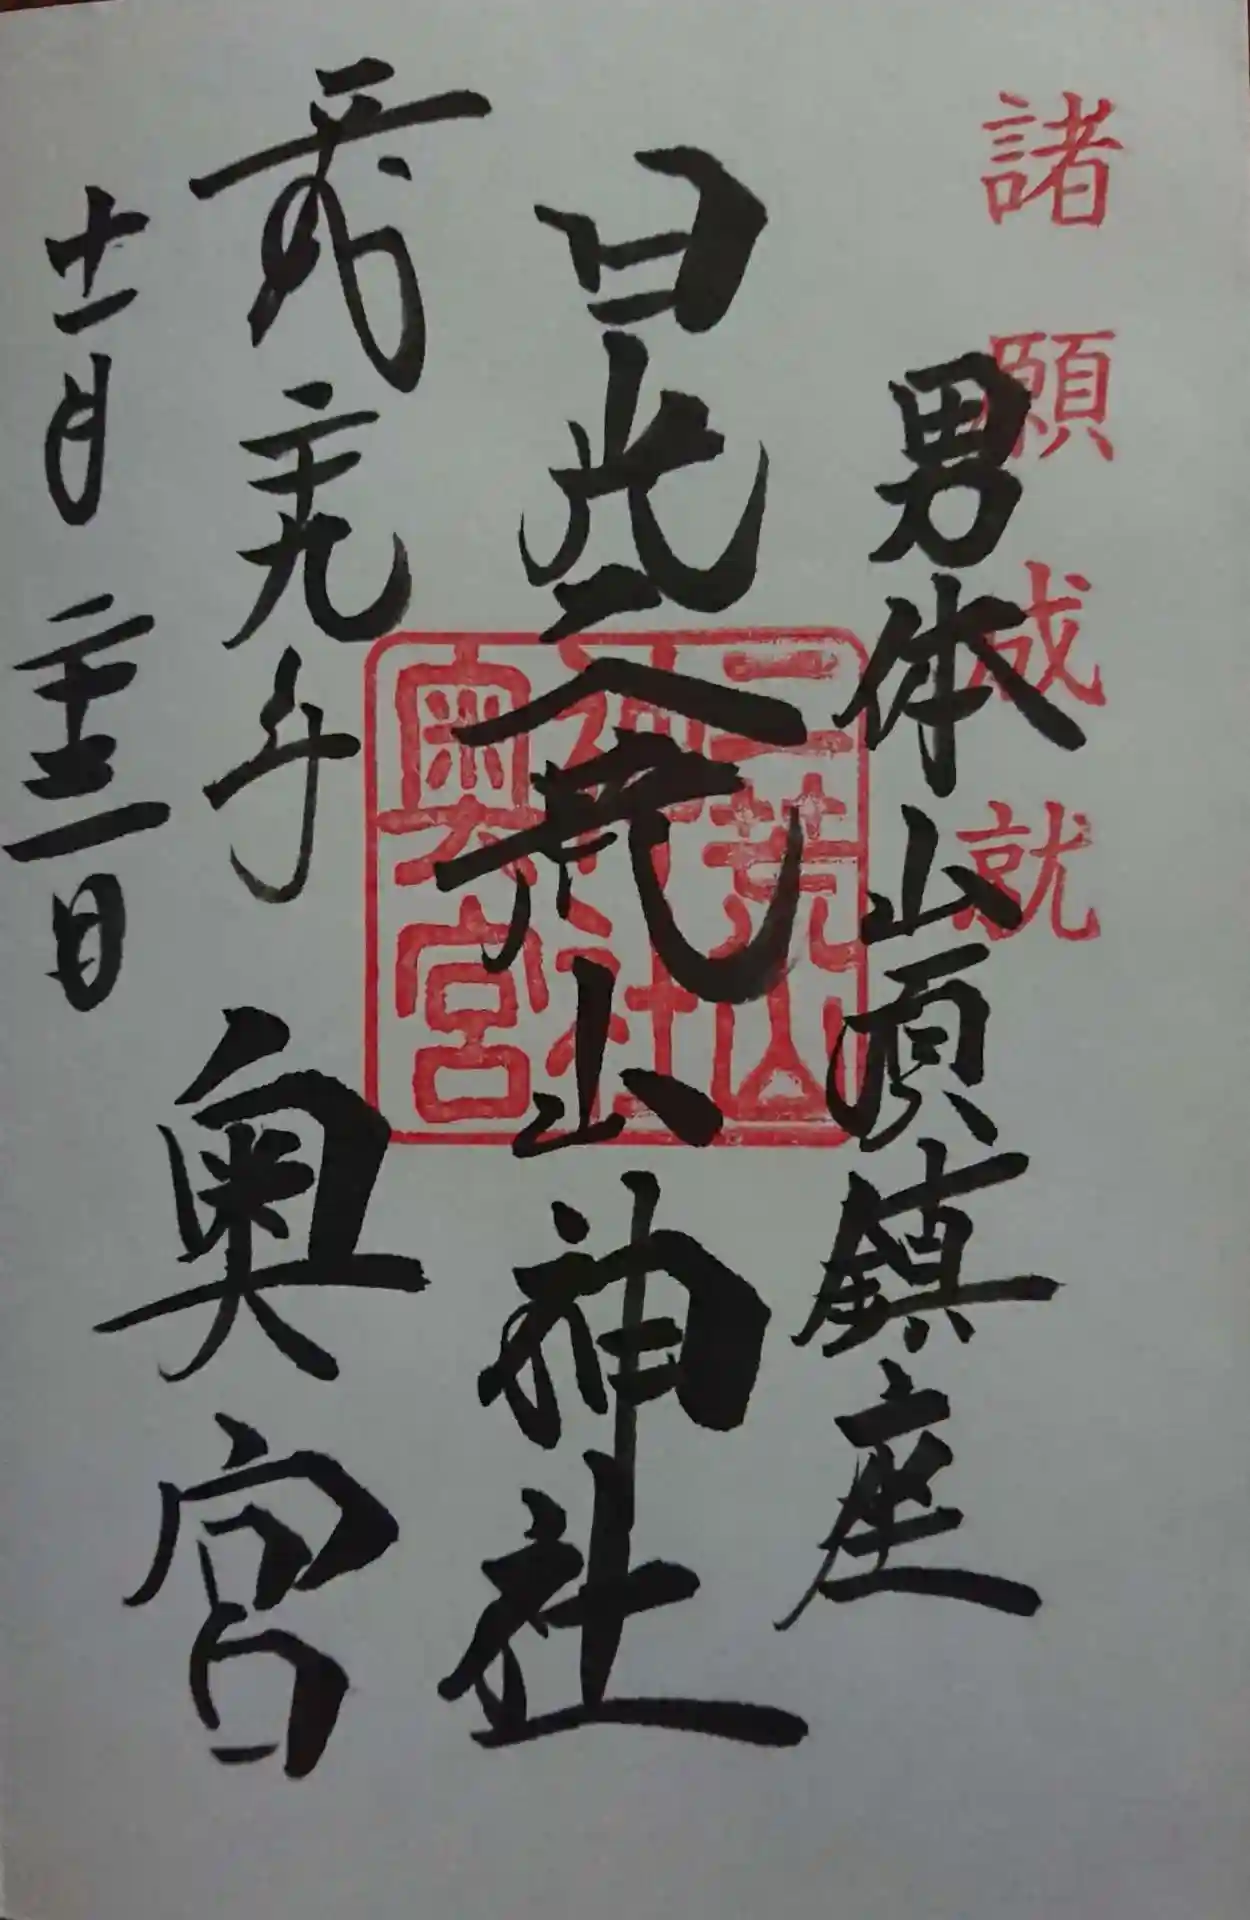 諸願成就
男体山頂鎮座
日光二荒山神社
奥宮
平成二十九年
十一月二十三日
二荒山
神社
奥宮